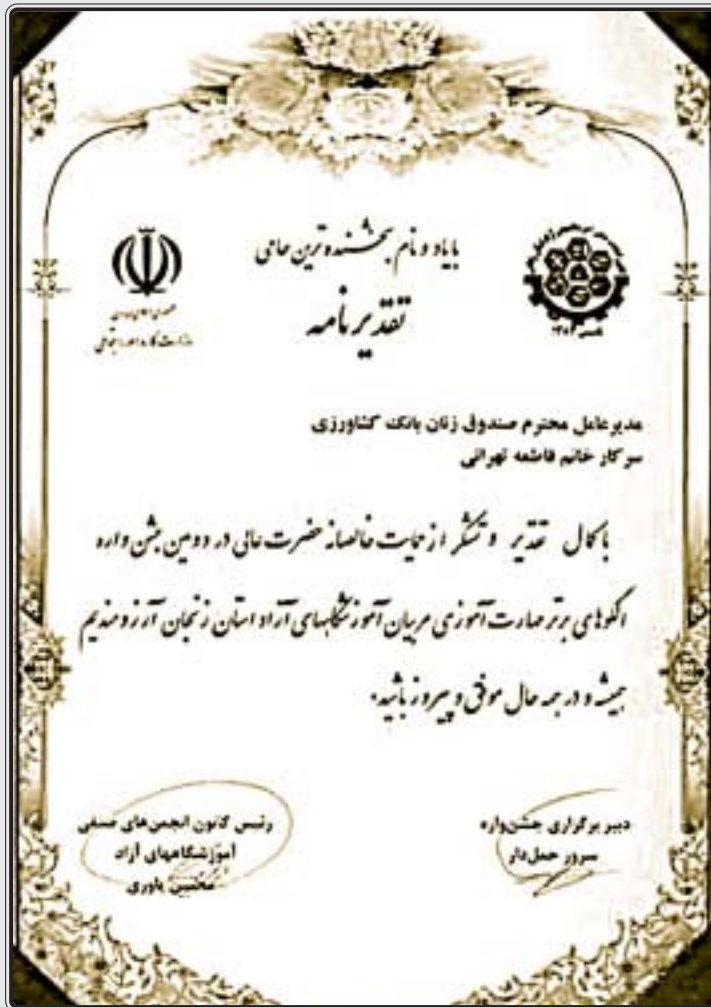 با یاد و نام بخشنده ترین حامی
تقدیرنامه
جمهوری اسلامی ایران
وزارت کار و امور اجتماعی
مدیرعامل محترم صندوق زنان بانک کشاورزی
سرکار خانم فاطمه تهرانی
با کمال تقدیر و تشکر از حمایت خالصانه حضرت عالی در دومین جشن واره
الگوهای برتر مهارت آموزی مربیان آموزشگاههای آزاد استان زنجان آرزومندیم
همیشه و در همه حال موفق و پیروز باشید.
دبیر برگزاری جشن‌واره
سرور حمل‌دار
رئیس کانون انجمن‌های صنفی
آموزشگاههای آزاد
محسن یاوری